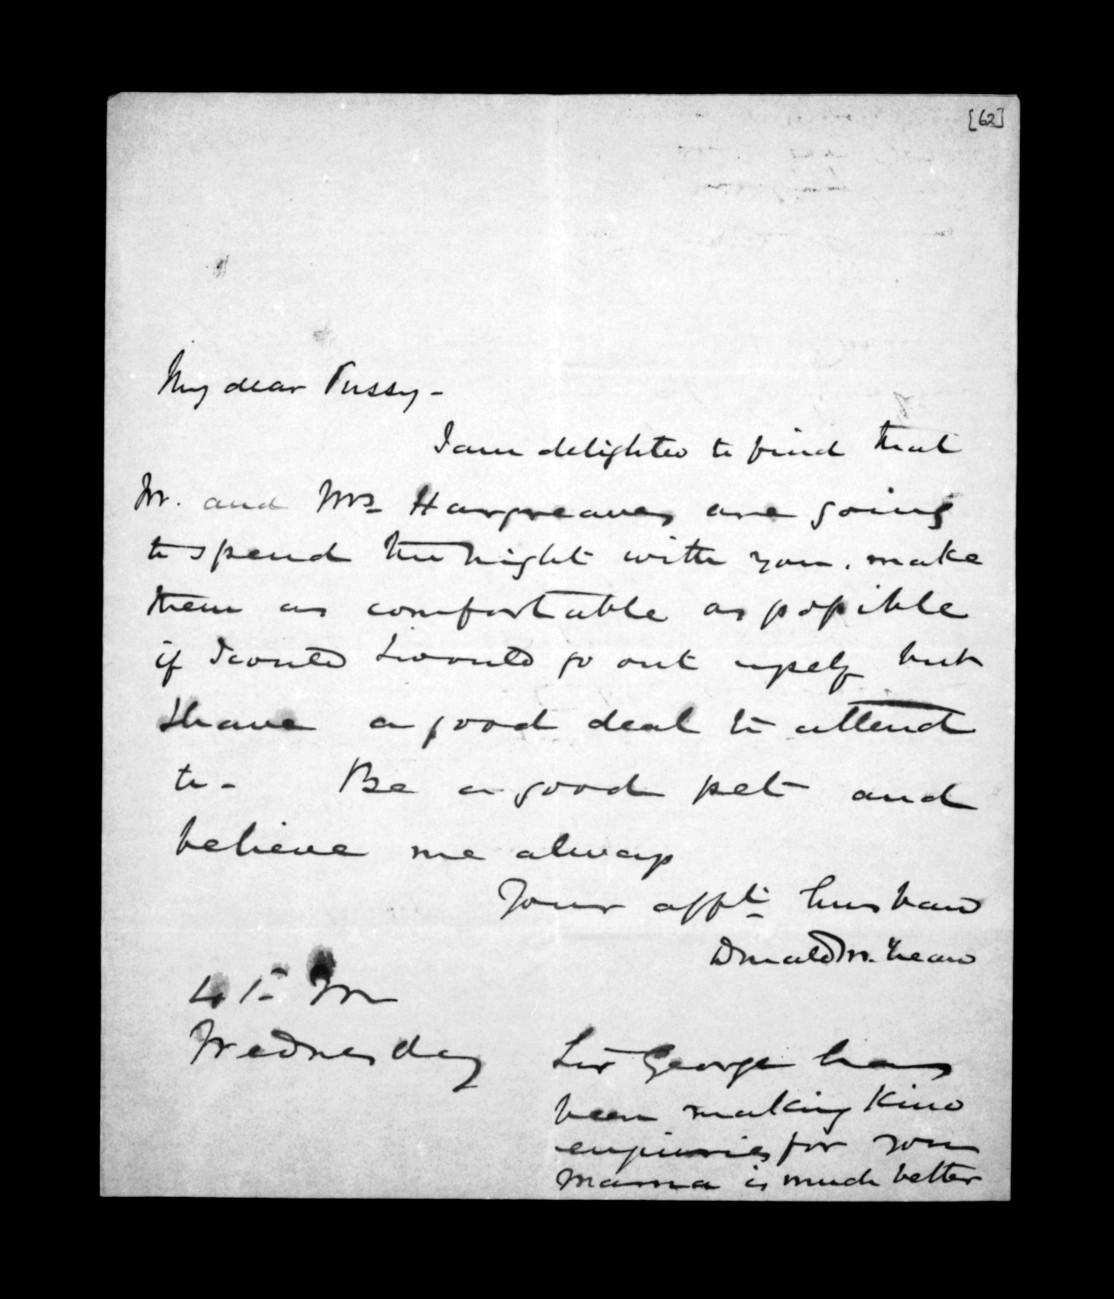 [62]
My dear Pussy -
I am delighted to find that
Mr. and Mrs Hargreaves are going
to spend the night with you. make
them as comfortable as possible
if I could I would go out myself but
I have a good deal to attend
to - Be a good pet and
believe me always
Your affte husband
Donald McLean
4 P.M
Wednesday
Sir George has
been making kind
enquiries for you
Mama is much better